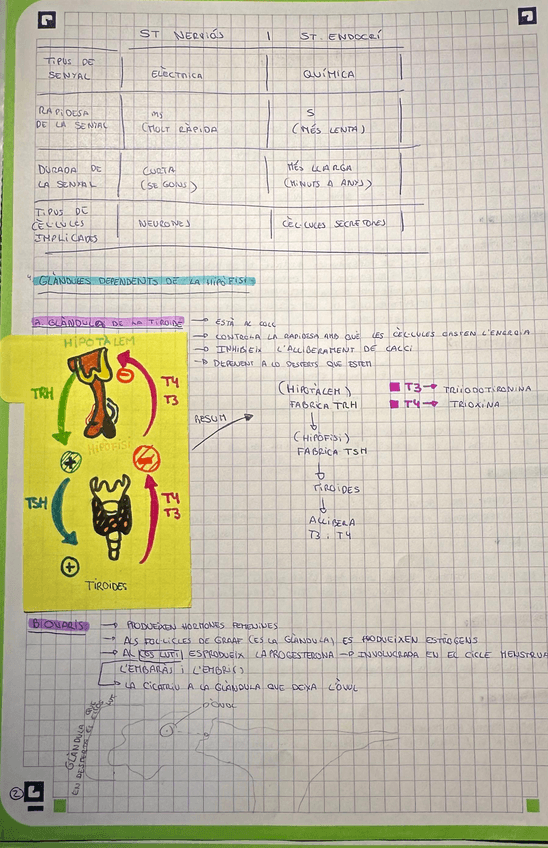 ST NERVIÓS | ST. ENDOCRÍ
TIPUS DE SENYAL ELÈCTRICA QUÍMICA
RAPIDESA DE LA SENYAL ms (MOLT RÀPIDA) S (MÉS LENTA)
DURADA DE LA SENYAL CURTA (SEGONS) MÉS LLARGA (MINUTS A ANYS)
TIPUS DE CÈL·LULES IMPLICADES NEURONES CÈL·LULES SECRETORES
GLÀNDULES DEPENDENTS DE LA HIPÒFISI
A. GLÀNDULA DE LA TIROIDE → ESTÀ AL COLL
→ CONTROLA LA RAPIDESA AMB QUÈ LES CÈL·LULES GASTEN L'ENERGIA
→ INHIBEIX L'ALLIBERAMENT DE CALCI
→ DEPENENT A LO DESPERTS QUE ESTEM
HIPOTÀLEM
TRH
T4
T3
HIPOFISI
TSH
T4
T3
TIROIDES
RESUM
(HIPOTÀLEM)
FABRICA TRH
(HIPÒFISI)
FABRICA TSH
TIROIDES
ALLIBERA
T3 i T4
T3 → TRIIODOTIRONINA
T4 → TRIOXINA
B. OVARIS → PRODUEIXEN HORMONES FEMENINES
→ ALS FOL·LICLES DE GRAAF (ES LA GLÀNDULA) ES PRODUEIXEN ESTRÒGENS
→ AL COS LUTI ES PRODUEIX LA PROGESTERONA → INVOLUCRADA EN EL CICLE MENSTRUA
L'EMBARÀS i L'EMBRIÓ
→ LA CICATRIU A LA GLÀNDULA QUE DEIXA L'ÒVUL
GLÀNDULA
EN DESPERTA EL
2